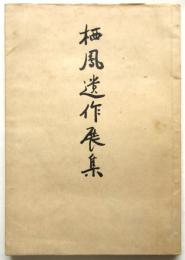 栖鳳遺作展集